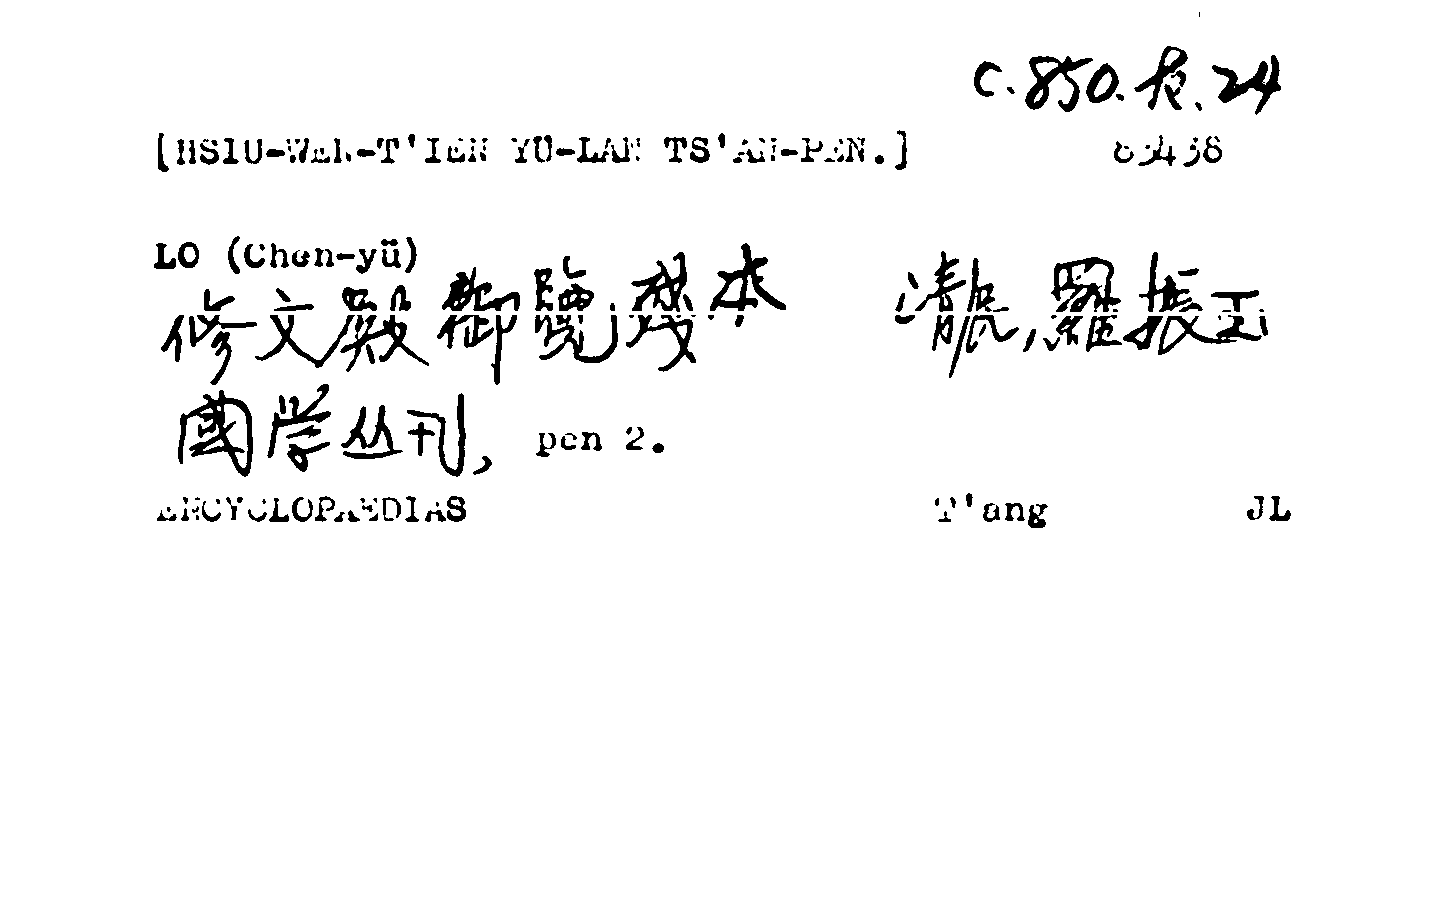 C.850.k.24
[HSIU-WEN-T'IEN YÜ-LAN TS'AN-PEN.]
LO (Chen-yü)
修文殿御覽殘本 清 羅振玉
國学丛刊, pen 2.
ENCYCLOPAEDIAS T'ang JL